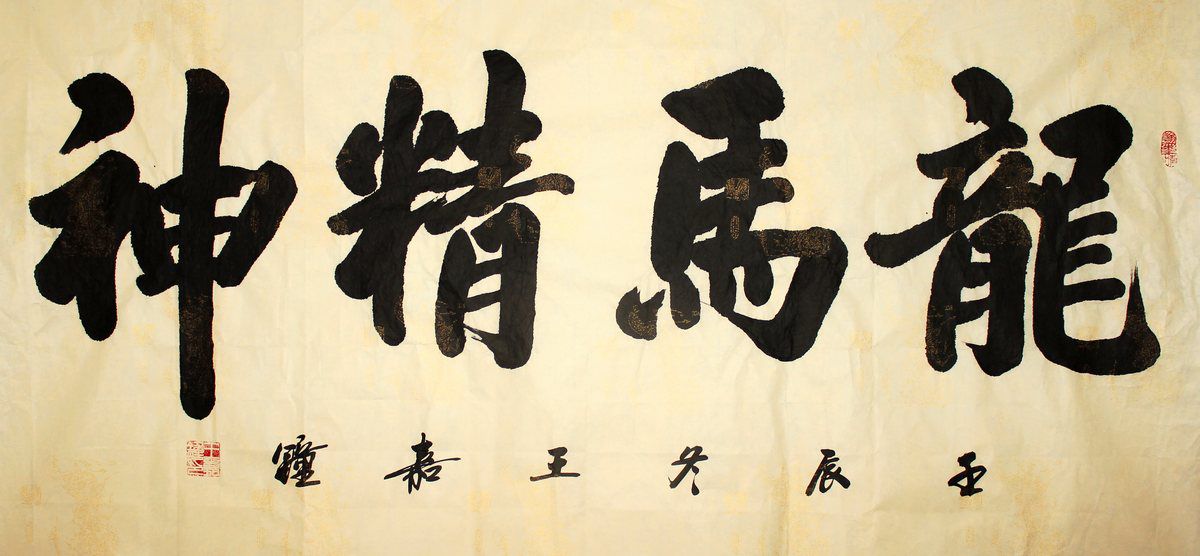 龍馬精神
壬辰冬王嘉鐘